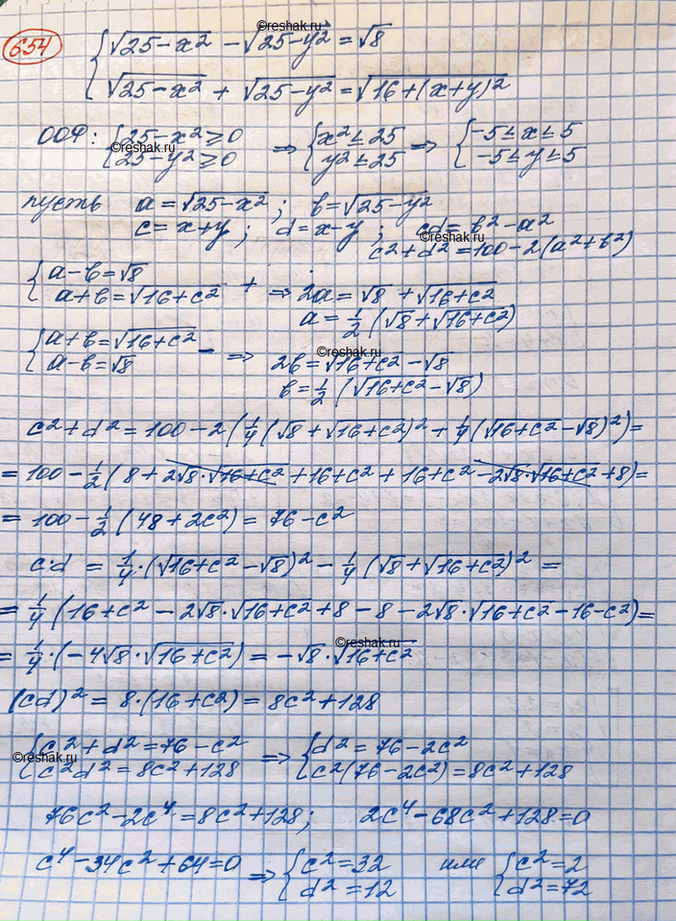 ©reshak.ru
654
{√25-x² - √25-y² = √8
{√25-x² + √25-y² = √16+(x+y)²
ООФ: {25-x² ≥ 0 ⇒ {x² ≤ 25 ⇒ {-5 ≤ x ≤ 5
{25-y² ≥ 0 {y² ≤ 25 {-5 ≤ y ≤ 5
©reshak.ru
пусть a = √25-x² ; b = √25-y²
c = x+y ; d = x-y ; cd = b²-a²
©reshak.ru
c²+d² = 100-2(a²+b²)
{a-b = √8
{a+b = √16+c² + ⇒ 2a = √8 + √16+c²
a = ½(√8 + √16+c²)
{a+b = √16+c²
{a-b = √8 - ⇒ 2b = √16+c² - √8
©reshak.ru
b = ½(√16+c² - √8)
c²+d² = 100-2(¼(√8+√16+c²)² + ¼(√16+c² - √8)²) =
= 100-½(8+2√8·√16+c² + 16+c² + 16+c² - 2√8·√16+c² + 8) =
= 100-½(48+2c²) = 76-c²
c·d = ¼·(√16+c² - √8)² - ¼(√8+√16+c²)² =
= ¼(16+c² - 2√8·√16+c² + 8 - 8 - 2√8·√16+c² - 16-c²) =
= ¼·(-4√8·√16+c²) = -√8·√16+c²
©reshak.ru
(cd)² = 8·(16+c²) = 8c²+128
{c²+d² = 76-c² ⇒ {d² = 76-2c²
©reshak.ru
{c²d² = 8c²+128 {c²(76-2c²) = 8c²+128
76c²-2c⁴ = 8c²+128; 2c⁴-68c²+128=0
c⁴-34c²+64=0 ⇒ {c²=32 или {c²=2
{d²=12 {d²=72